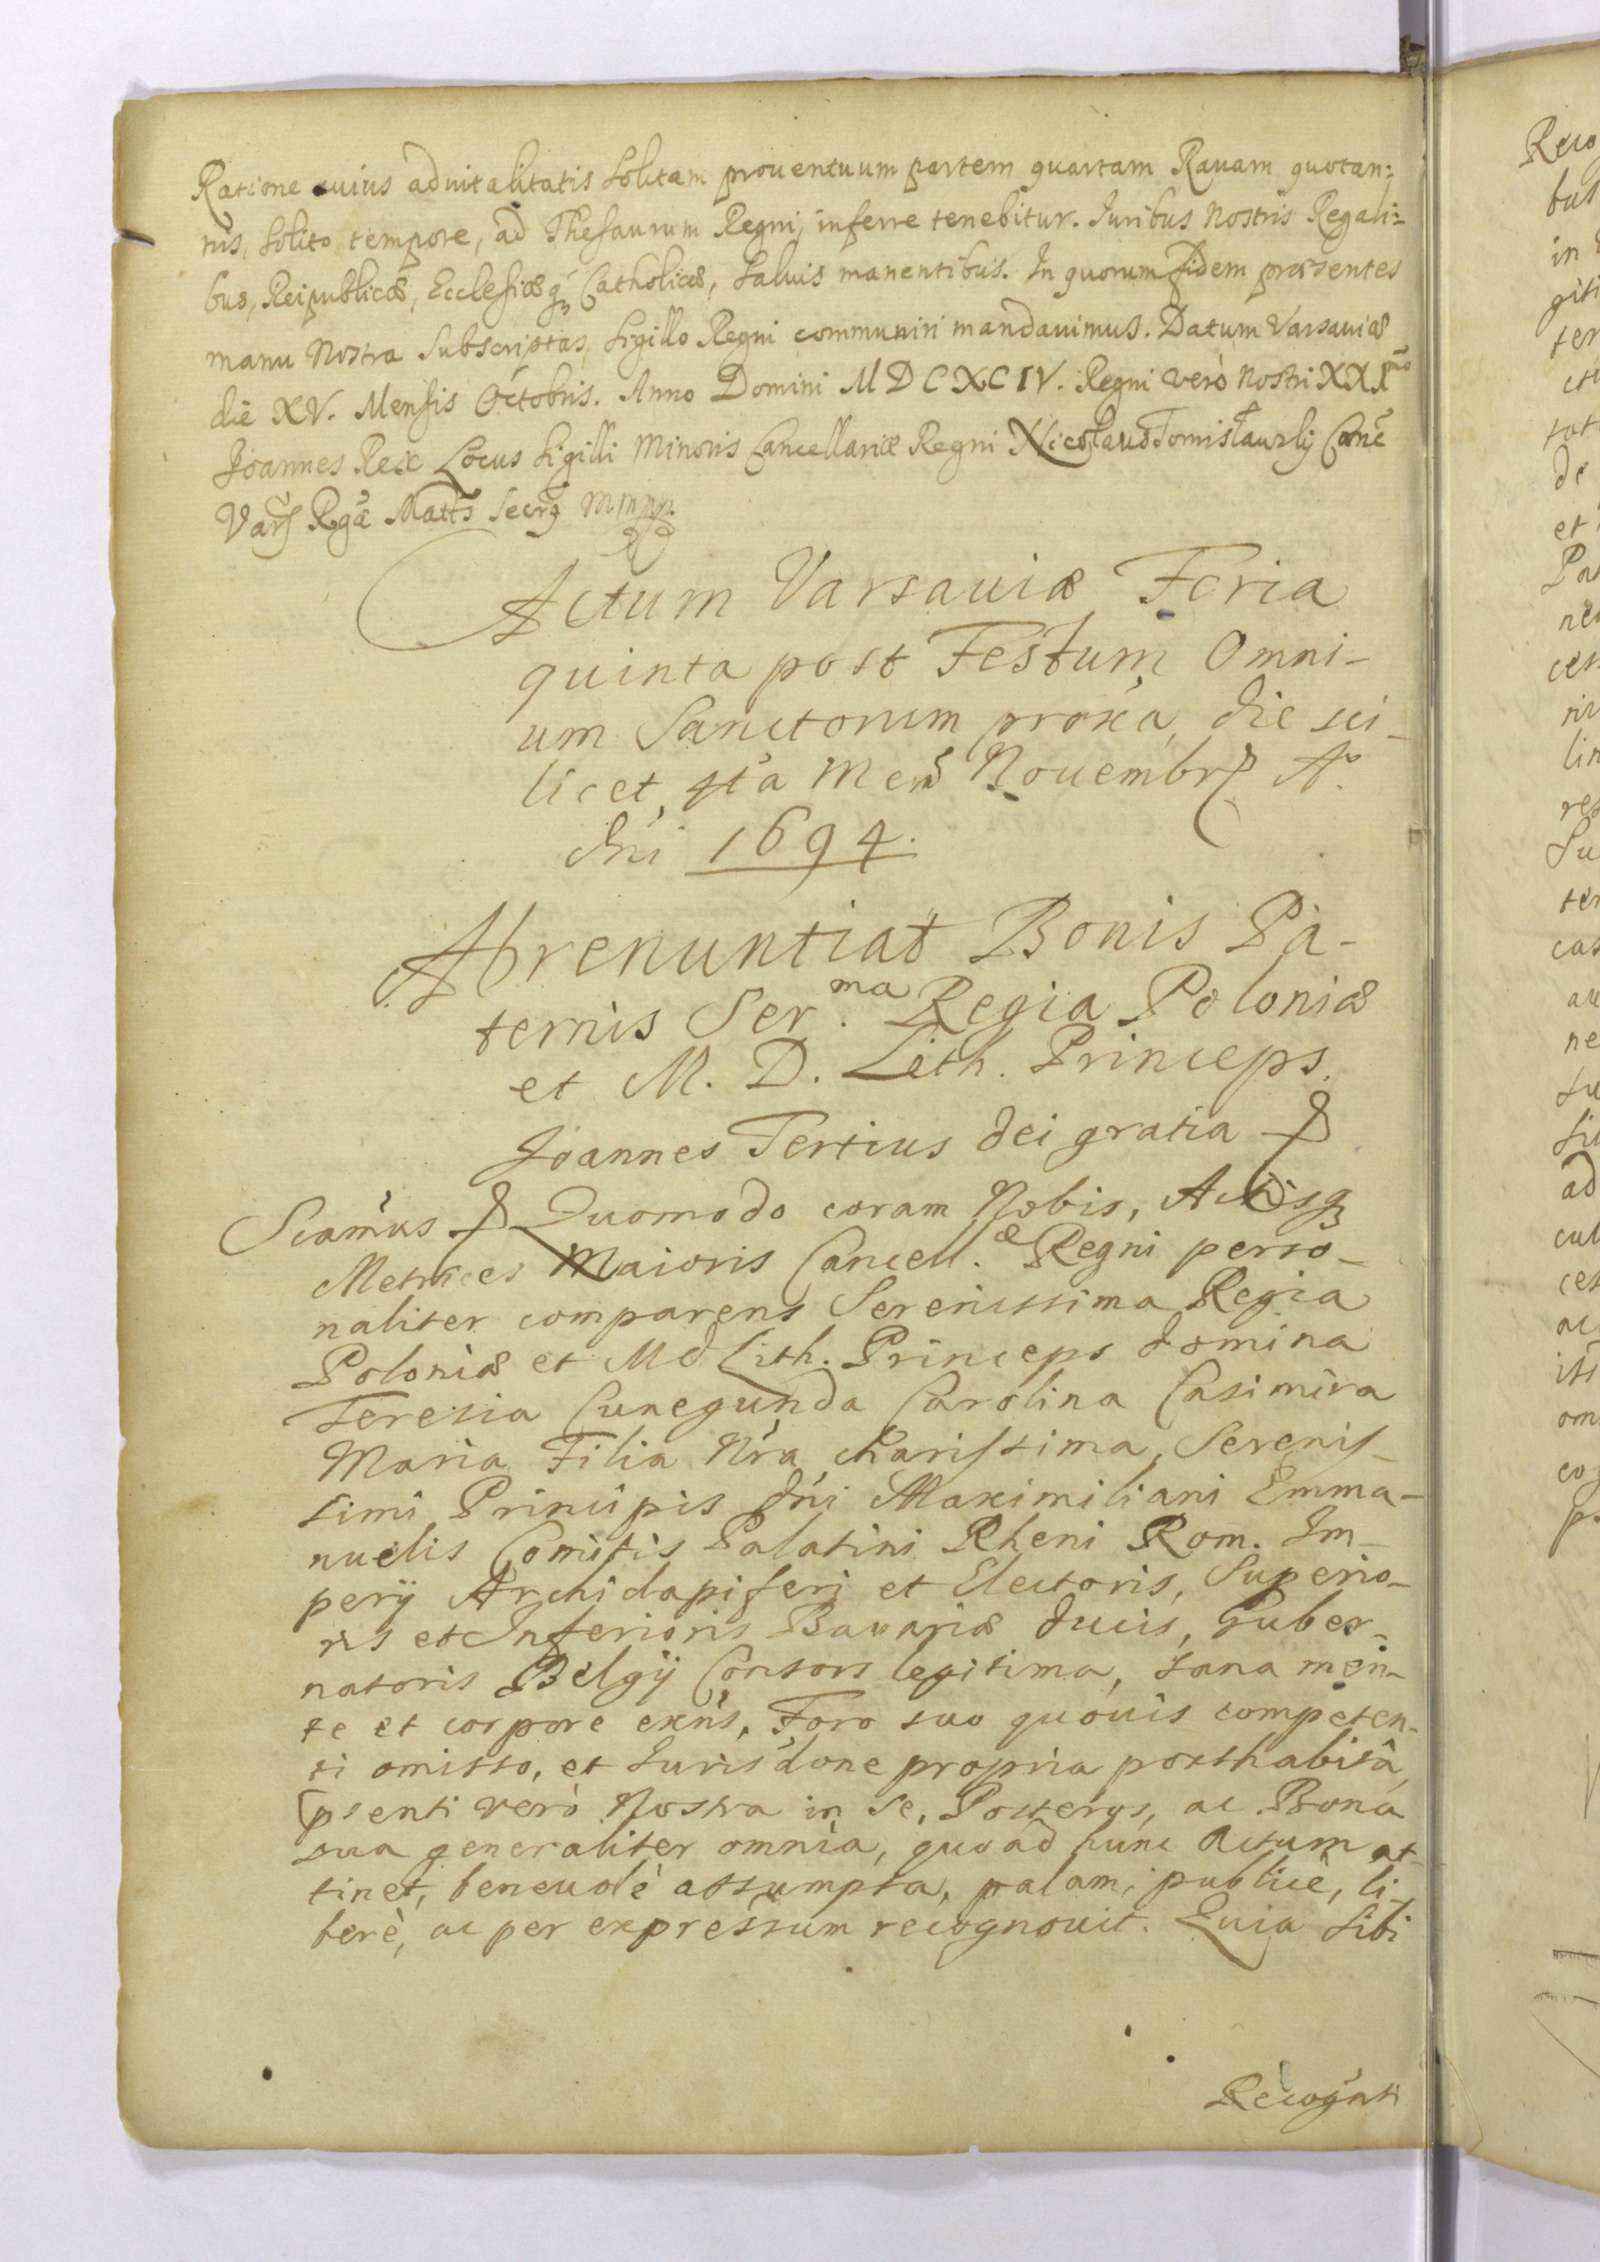 Ratione cuius aduitalitatis solitam prouentuum partem quartam Rauam quotan:
nis, solito tempore, ad Thesaurum Regni, inferre tenebitur. Iuribus nostris Regali:
bus, Reipublicæ, Ecclesiæq3 Catholicæ, saluis manentibus. In quorum fidem præsentes
manu Nostra Subscriptas, Sigillo Regni communiri mandauimus. Datum Varsauiæ
die XV. Mensis Octobris. Anno Domini MDCXCIV. Regni verò nostri XXI
Joannes Rex Locus Sigilli Minoris Cancellariæ Regni Nicolaus Tomisławsky
Vars Rgæ Mattis Secrs mmpp.
Actum Varsauiæ Feria
quinta post Festum Omni-
um Sanctorum proxa, die sci-
licet 4ta Mens Nouembr A°
dni 1694.
Abrenuntiat Bonis Pa-
ternis Ser.ma Regia Poloniæ
et M. D. Lith. Princeps.
Joannes Tertius dei gratia
Sciamus Quomodo coram Nobis, Actisq3
Metrices Maioris Cancell.æ Regni perso-
naliter comparens Serenissima Regia
Poloniæ et Md Lith. Princeps domina
Teresia Cunegunda Carolina Casimira
Maria Filia Nra charissima, Serenis-
simi Principis dni Maximiliani Emma-
nuelis Comitis Palatini Rheni Rom. Im-
perij Archidapiferi et Electoris, Superio-
ris et Inferioris Bauariæ ducis, Guber-
natoris Belgij Consors legitima, sana men-
te et corpore exns, Foro suo quouis competen-
ti omisso, et Jurisdone propria posthabitâ,
psenti verò Nostra in se, Posteros, ac Bona
sua generaliter omnia, quoad hunc Actum at-
tinet, beneuolè assumpta, palam, publicè, li-
berè, ac per expressum recognouit. Quia sibi
Recognti